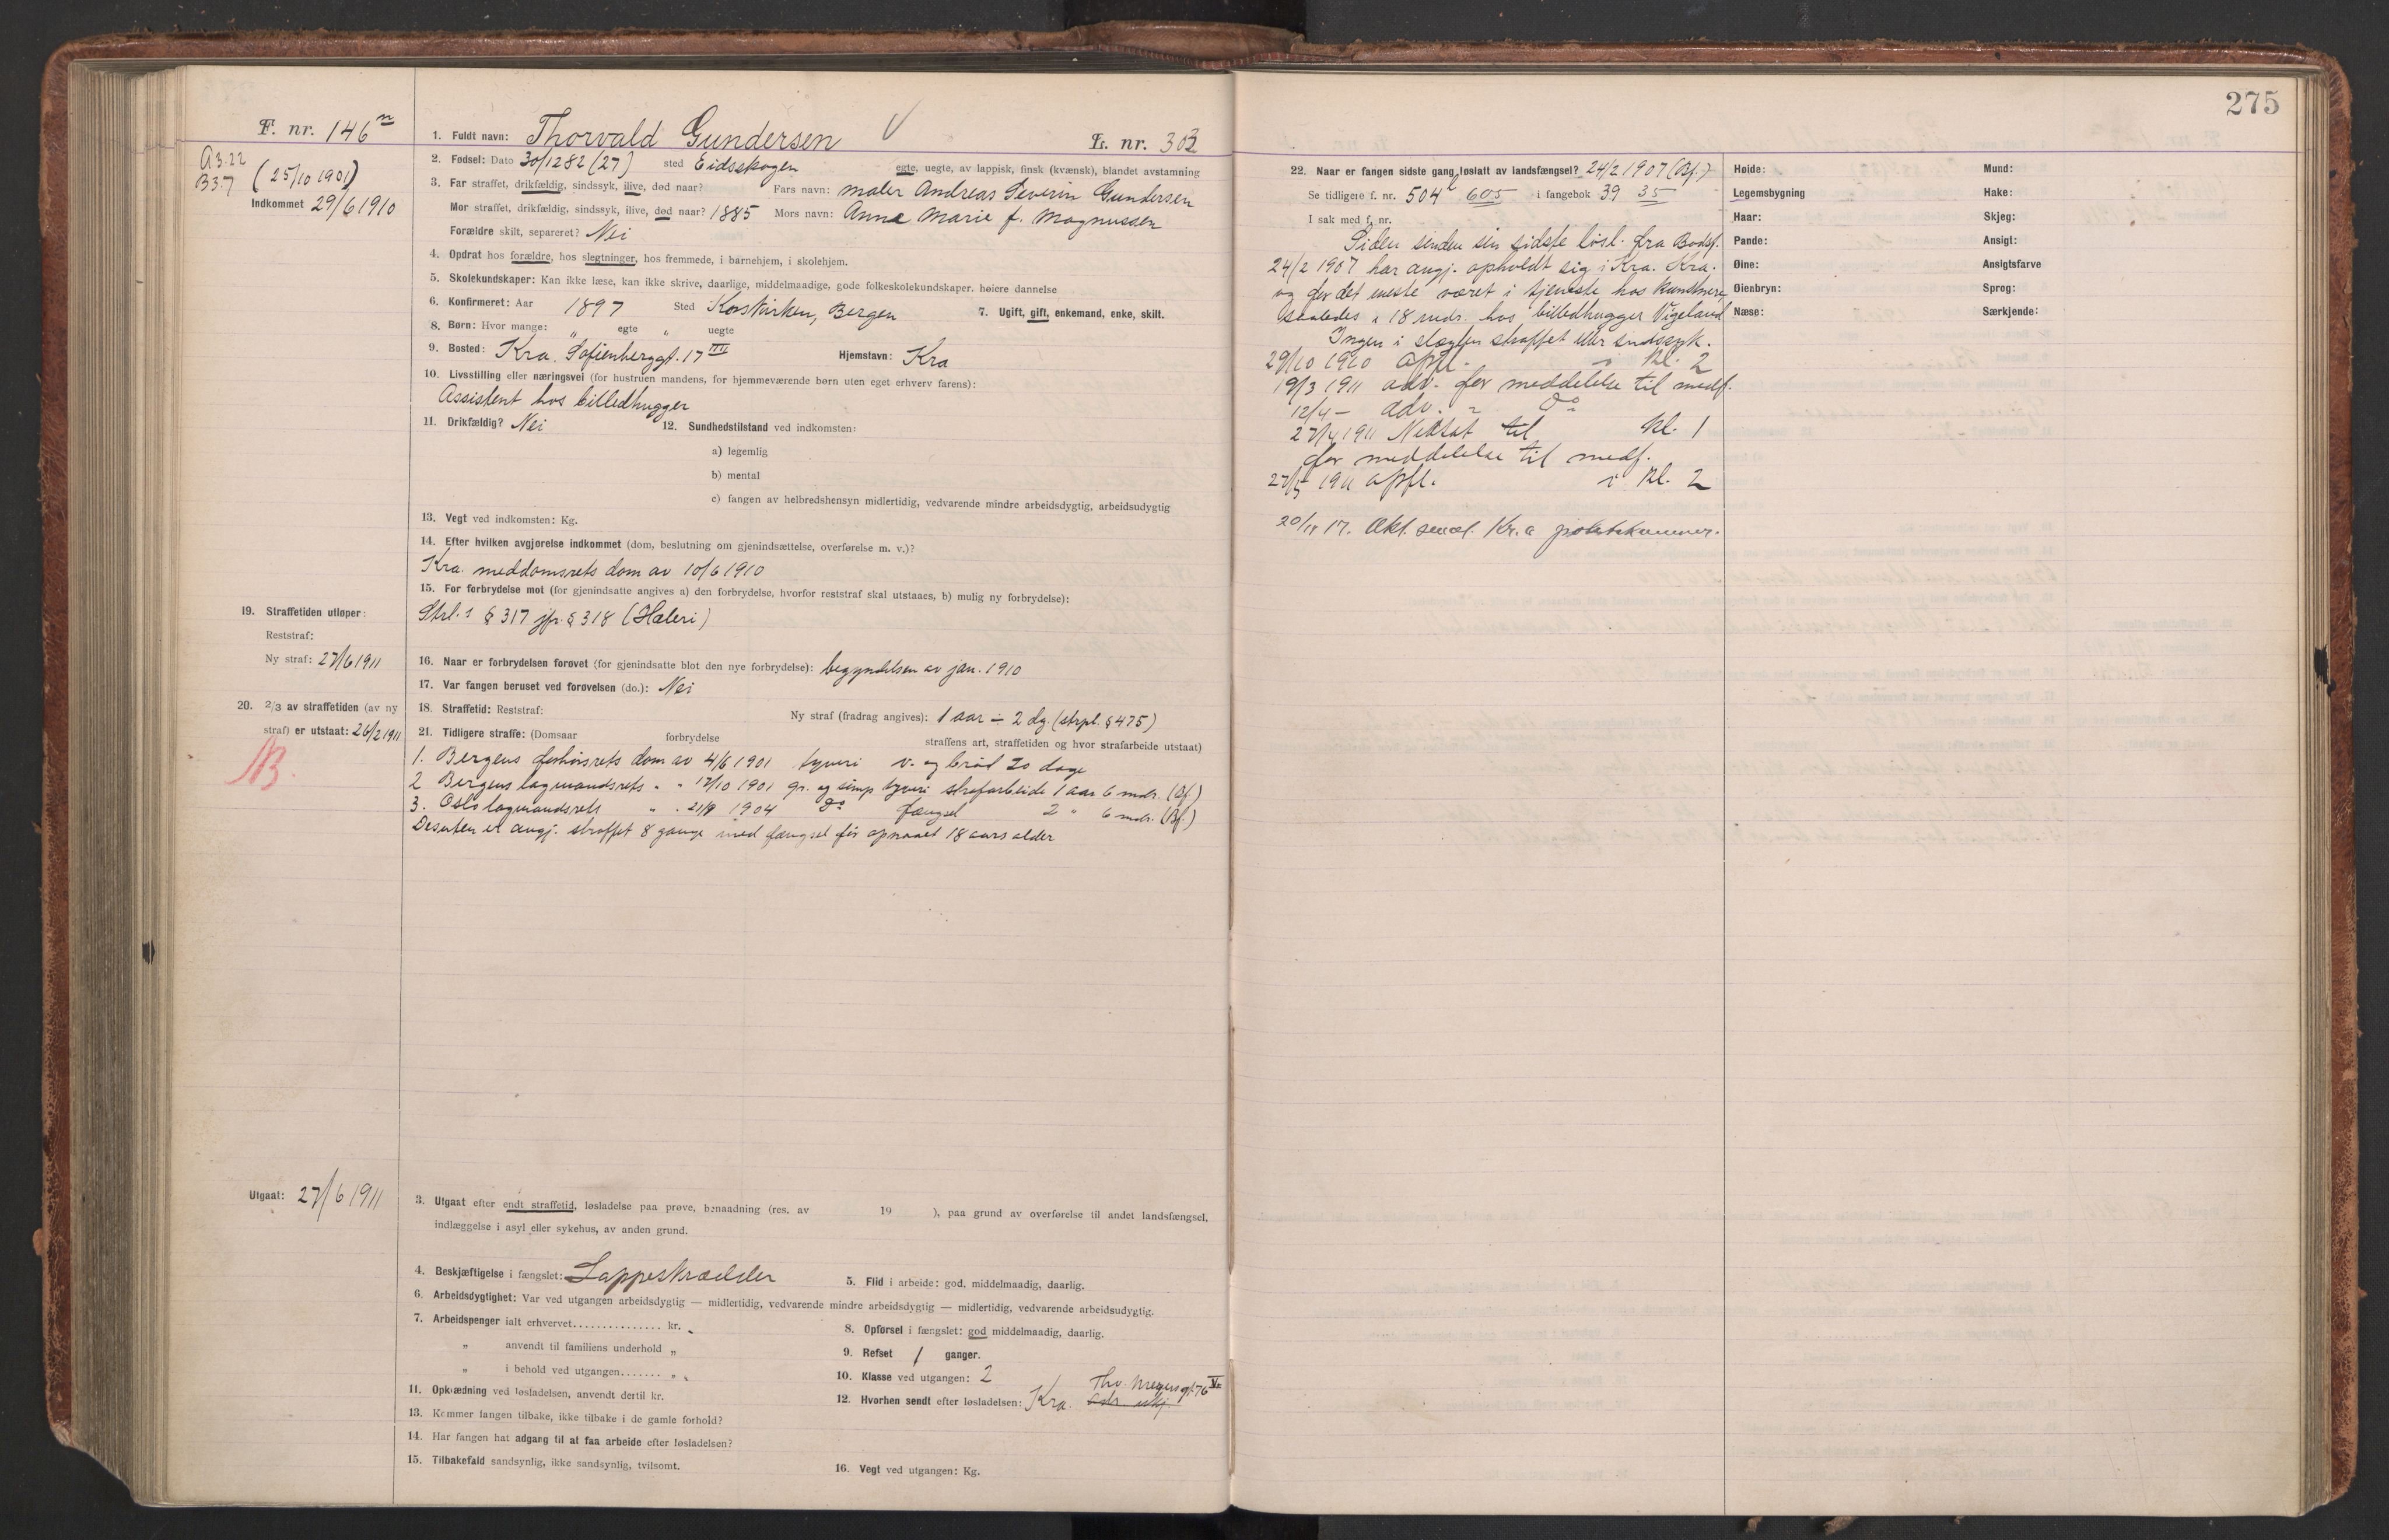 275
F. nr. 146
A 3.22
B 3.7
(25/10 1901)
Indkommet 29/6 1910
1. Fuldt navn: Thorvald Gundersen V L. nr. 303
2. Fødsel: Dato 30/12 82 (27) sted Eidsskogen egte, uegte, av lappisk, finsk (kvænsk), blandet avstamning
3. Far straffet, drikfældig, sindssyk, ilive, død naar? Fars navn: maler Andreas Severin Gundersen
Mor straffet, drikfældig, sindssyk, ilive, død naar? 1885 Mors navn: Anna Marie f. Magnussen
Forældre skilt, separeret? Nei
4. Opdrat hos forældre, hos slegtninger, hos fremmede, i barnehjem, i skolehjem.
5. Skolekundskaper: Kan ikke læse, kan ikke skrive, daarlige, middelmaadige, gode folkeskolekundskaper. høiere dannelse
6. Konfirmeret: Aar 1897 Sted Korskirken, Bergen 7. Ugift, gift, enkemand, enke, skilt.
8. Børn: Hvor mange: „ egte „ uegte
9. Bosted: Kra. Sofienberggt. 17 III Hjemstavn: Kra
10. Livsstilling eller næringsvei (for hustruen mandens, for hjemmeværende børn uten eget erhverv farens):
Assistent hos billedhugger
11. Drikfældig? Nei 12. Sundhedstilstand ved indkomsten:
a) legemlig
b) mental
c) fangen av helbredshensyn midlertidig, vedvarende mindre arbeidsdygtig, arbeidsudygtig
13. Vegt ved indkomsten: Kg.
14. Efter hvilken avgjørelse indkommet (dom, beslutning om gjenindsættelse, overførelse m. v.)?
Kra. meddomsrets dom av 10/6 1910
15. For forbrydelse mot (for gjenindsatte angives a) den forbrydelse, hvorfor reststraf skal utstaaes, b) mulig ny forbrydelse):
Strl. § 317 jfr. § 318 (Hæleri)
19. Straffetiden utløper:
Reststraf:
Ny straf: 27/6 1911
16. Naar er forbrydelsen forøvet (for gjenindsatte blot den nye forbrydelse): begyndelsen av jan. 1910
17. Var fangen beruset ved forøvelsen (do.): Nei
20. 2/3 av straffetiden (av ny
straf) er utstaat: 26/2 1911
18. Straffetid: Reststraf: Ny straf (fradrag angives): 1 aar ÷ 2 dg. (strpl. § 475)
21. Tidligere straffe: (Domsaar forbrydelse straffens art, straffetiden og hvor strafarbeide utstaat)
1. Bergens forhørsrets dom av 4/6 1901 tyveri v. og brød 20 dage
2 Bergens lagmandsrets " " 17/10 1901 gr. og simp tyveri strafarbeide 1 aar 6 mdr. (Bf)
3. Oslo lagmandsrets " " 21/9 1904 do fængsel 2 " 6 mdr. (Bf.)
Desuten er angj. straffet 8 gange med fængsel før opnaaet 18 aars alder
Utgaat: 27/6 1911
3. Utgaat efter endt straffetid, løsladelse paa prøve, benaadning (res. av 19 ), paa grund av overførelse til andet landsfængsel,
indlæggelse i asyl eller sykehus, av anden grund.
4. Beskjæftigelse i fængslet: Lappeskrædder 5. Flid i arbeide: god, middelmaadig, daarlig.
6. Arbeidsdygtighet: Var ved utgangen arbeidsdygtig — midlertidig, vedvarende mindre arbeidsdygtig — midlertidig, vedvarende arbeidsudygtig.
7. Arbeidspenger ialt erhvervet............... kr. „ 8. Opførsel i fængslet: god middelmaadig, daarlig.
„ anvendt til familiens underhold „ 9. Refset 1 ganger.
„ i behold ved utgangen....... „ 10. Klasse ved utgangen: 2
11. Opklædning ved løsladelsen, anvendt dertil kr. 12. Hvorhen sendt efter løsladelsen: Kra. Thv. Meyersgt. 76 V
13. Kommer fangen tilbake, ikke tilbake i de gamle forhold?
14. Har fangen hat adgang til at faa arbeide efter løsladelsen?
15. Tilbakefald sandsynlig, ikke sandsynlig, tvilsomt. 16. Vegt ved utgangen: Kg.
22. Naar er fangen sidste gang løslatt av landsfængsel? 24/2 1907 (Bf.)
Se tidligere f. nr. 504 605 i fangebok 39 35
I sak med f. nr.
Siden sin sidste løsl. fra Bodsf.
24/2 1907 har angj. opholdt sig i Kra. Kra.
og for det meste været i tjeneste hos kunstnere,
saaledes i 18 mdr. hos billedhugger Vigeland
Ingen i slegten straffet eller sindssyk.
29/10 1910 Opfl. i Kl. 2
19/3 1911 adv. for meddelelse til medf.
12/4 – adv. " do
27/4 1911 Nedsat til Kl. 1
for meddelelse til medf.
27/5 1911 opfl. i Kl. 2
20/11 17. Akt. Kr.a politikammer.
Høide: Mund:
Legemsbygning Hake:
Haar: Skjeg:
Pande: Ansigt:
Øine: Ansigtsfarve
Øienbryn: Sprog:
Næse: Særkjende: